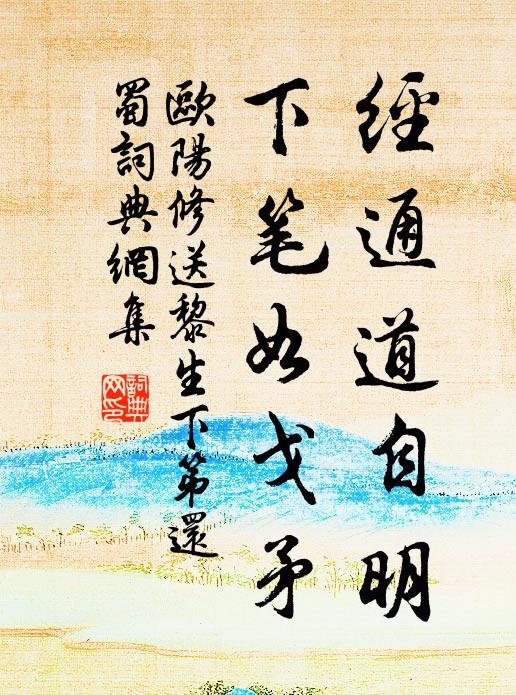 經通道自明
下笔如戈矛
歐陽修送黎生下第還
蜀詞典網集
詞典
网印